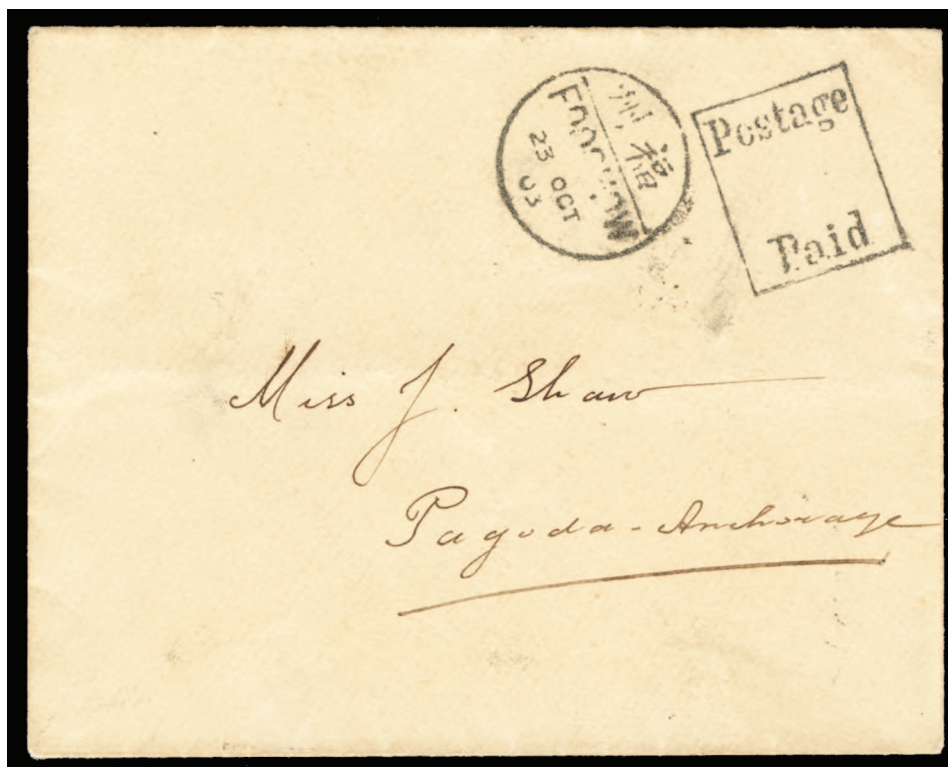 福州
FOOCHOW
23 OCT
03
Postage
Paid
Miss J. Shaw
Pagoda-Anchorage